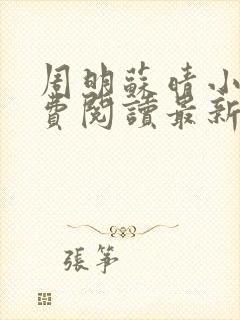 周明蘇晴小
費閱讀最新
張筝